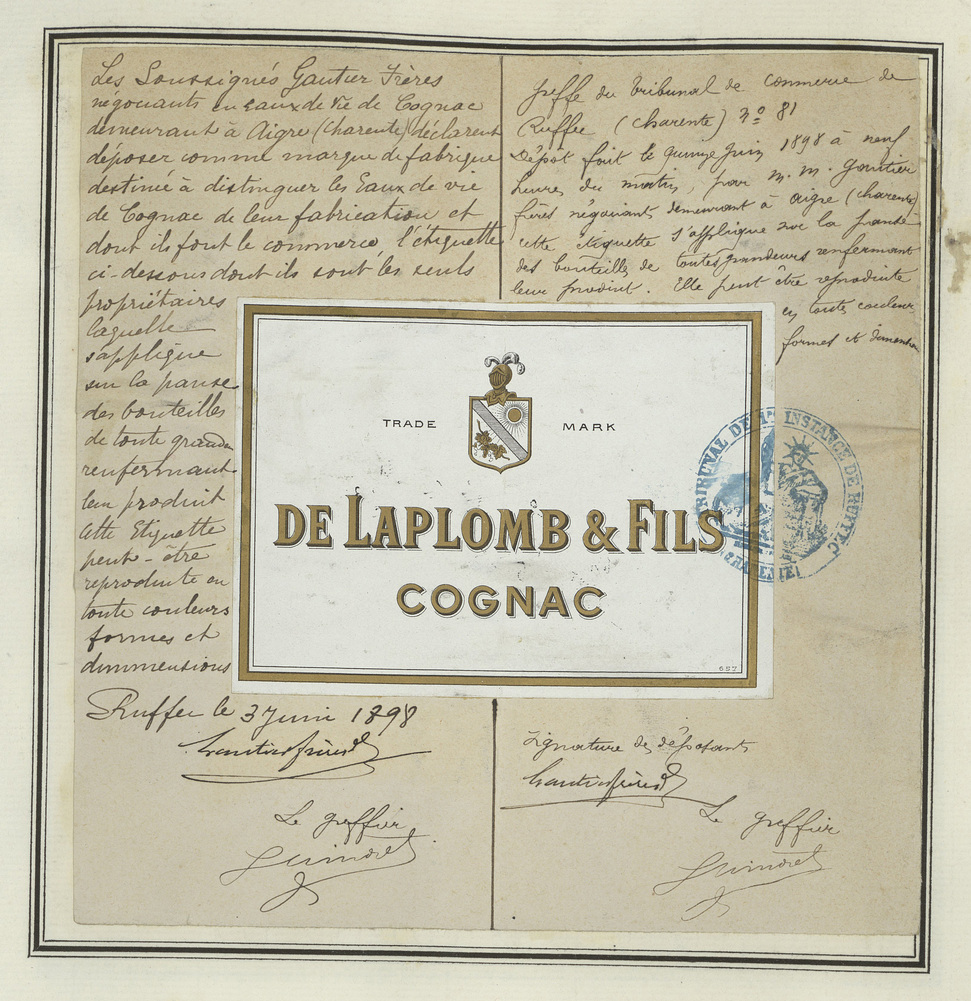 Les Soussignés Gautier Frères
négociants en eaux de vie de Cognac
demeurant à Aigre (Charente) déclarent
déposer comme marque de fabrique
destinée à distinguer les Eaux de vie
de Cognac de leur fabrication et
dont ils font le commerce, l'étiquette
ci-dessous dont ils sont les seuls
propriétaires
laquelle
s'applique
sur la panse
des bouteilles
de toute grandeur
renfermant
leur produit
Cette Etiquette
peut-être
reproduite en
toute couleurs
formes et
dimmensions
Ruffec le 3 Juin 1898
Gautier frères
Le greffier
Greffe du Tribunal de Commerce de
Ruffec (Charente) Nº 81
Dépôt fait le quinze Juin 1898 à neuf
heures du matin, par M. M. Gautier
frères négociants demeurant à Aigre (Charente)
cette étiquette s'applique sur la panse
des bouteilles de toutes grandeurs renfermant
leur produit. Elle peut être reproduite
en toutes couleurs
formes et dimensions
TRADE MARK
DE LAPLOMB & FILS
COGNAC
657
TRIBUNAL DE 1RE INSTANCE DE RUFFEC
(CHARENTE)
Signature des déposants
Gautier frères
Le greffier